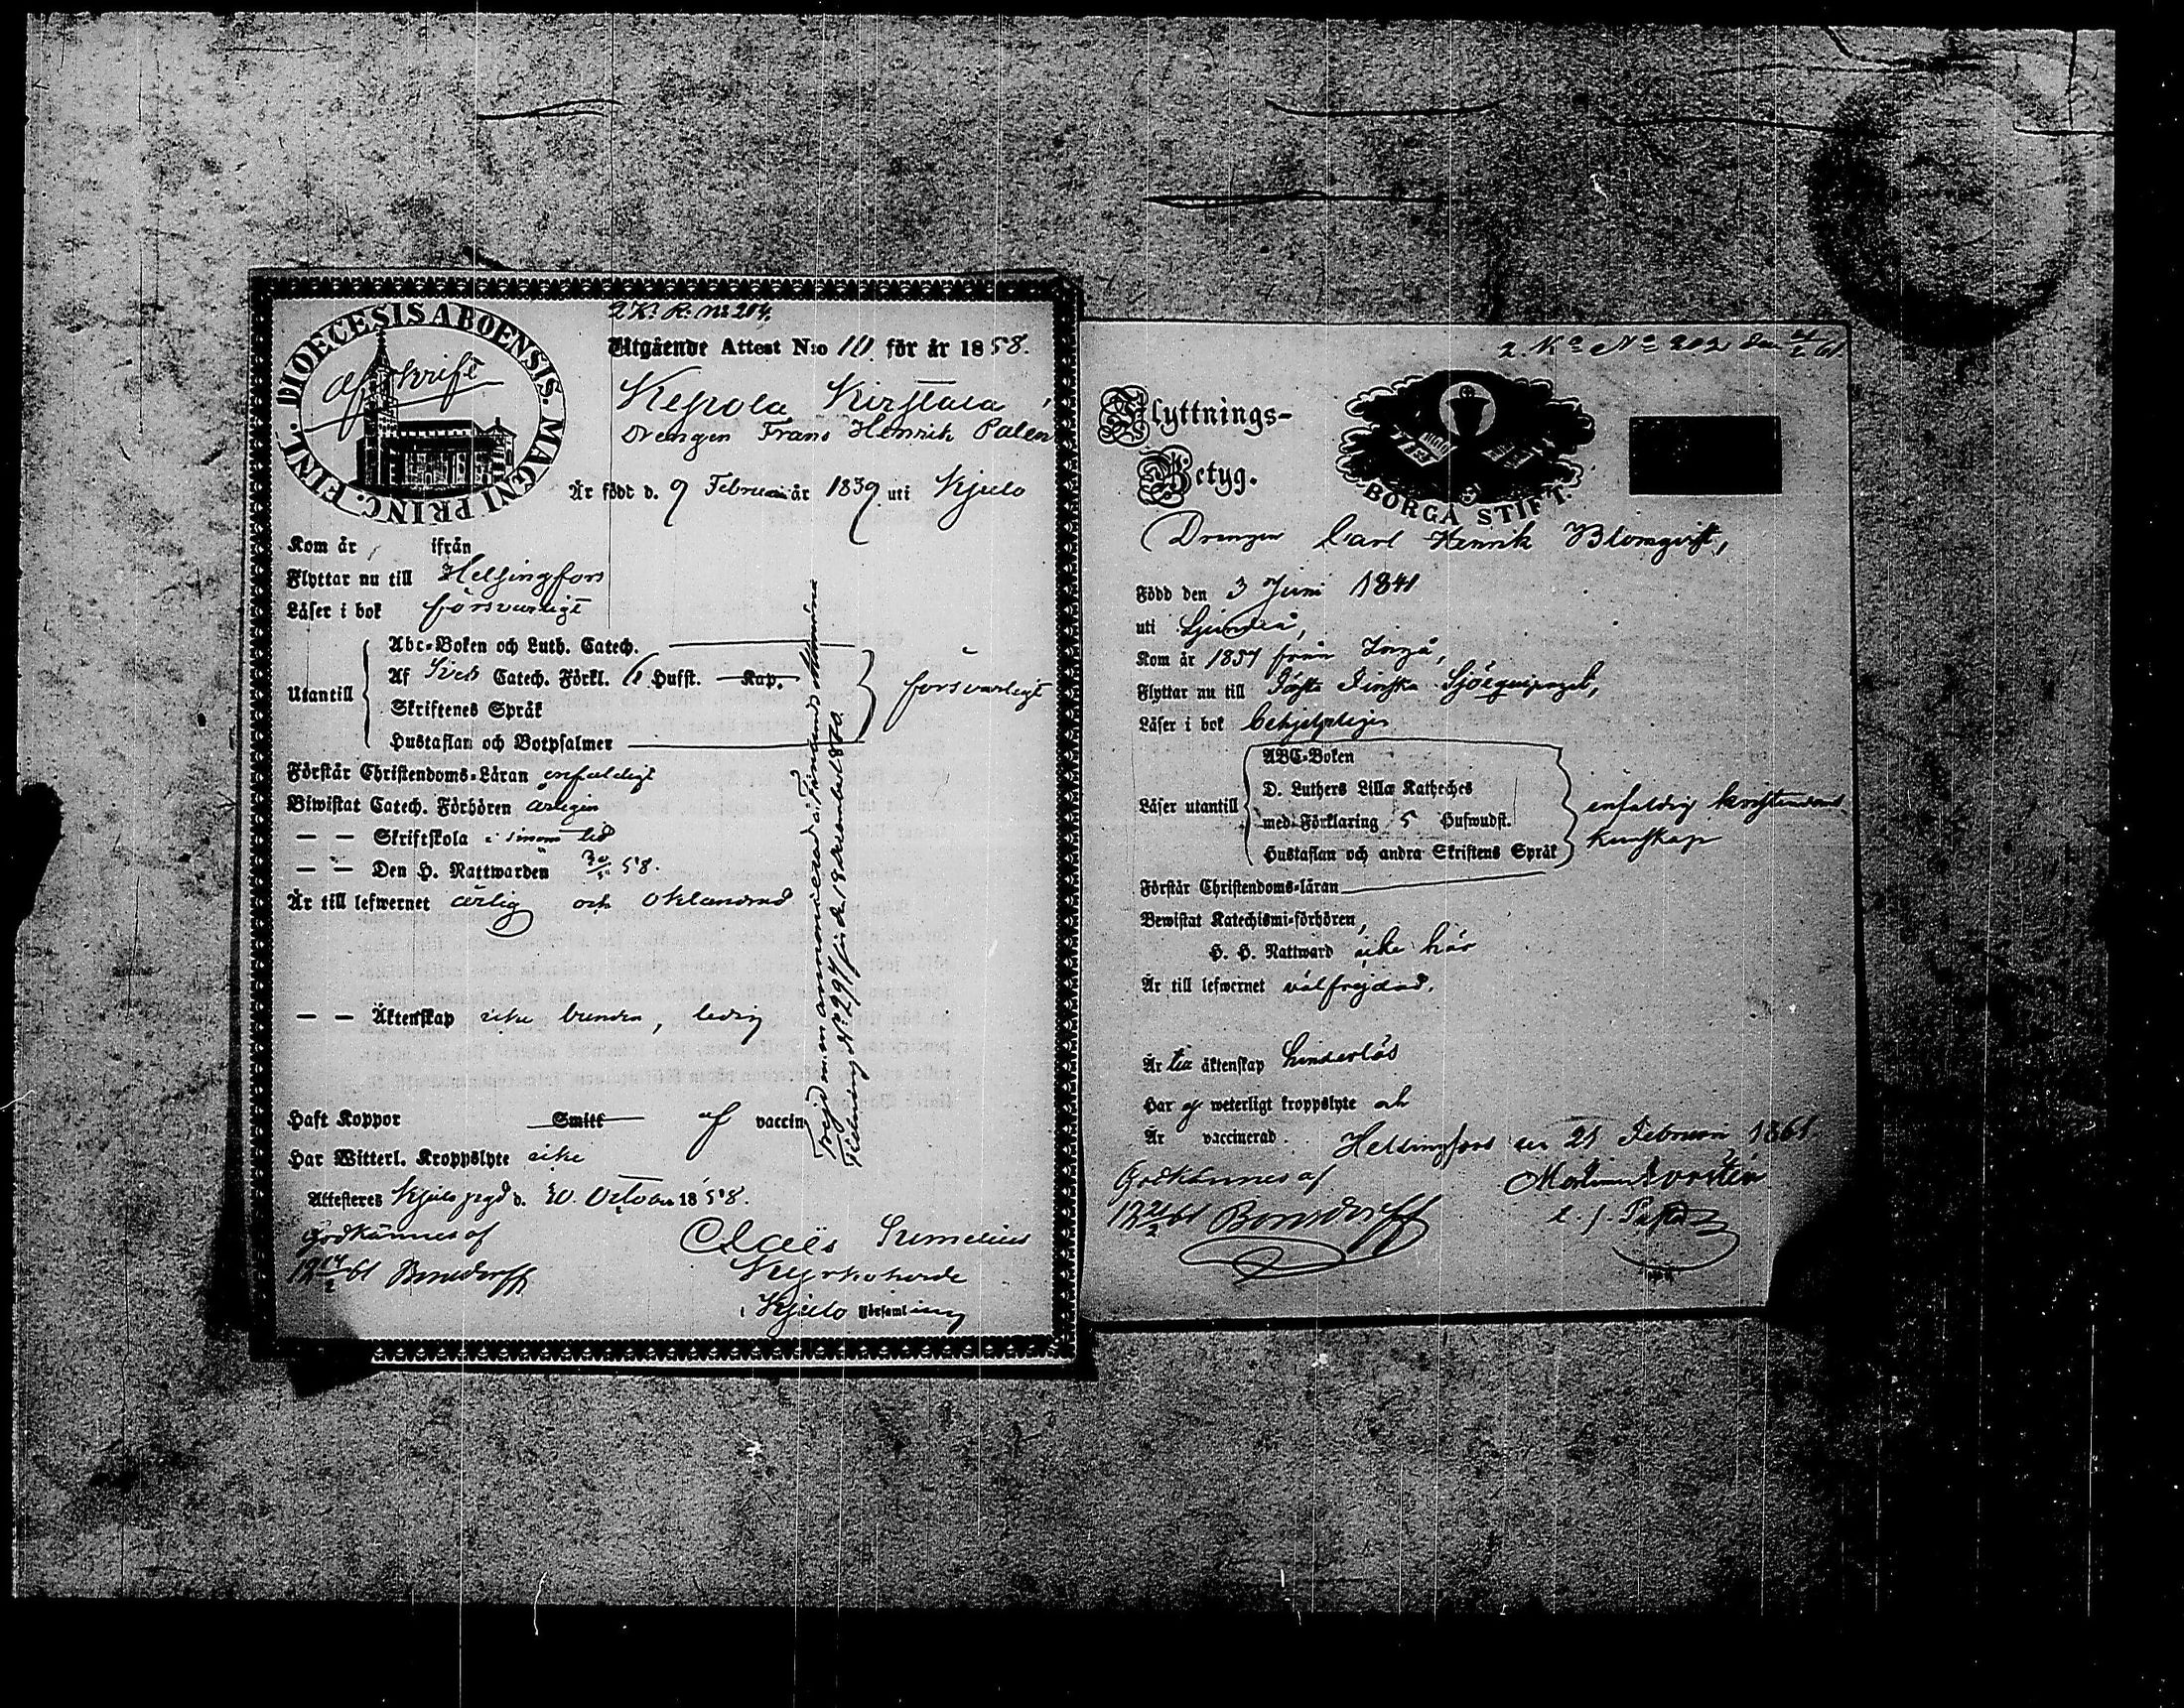 DIOECESIS ABOENSIS. MAGNI PRINC. FINL.
Afskrift
2 K: R: No 204,
Utgående Attest N:o 10. för år 1858.
Kepola
Drengen Frans Henrik Palen
Är född d. 9 Februari år 1839 uti Kjulo
Kom år ifrån
Flyttar nu till Helsingfors
Läser i bok försvarligt
Utantill
Abc-Boken och Luth. Catech.
Af Sveb Catech. Förkl. 6 Hufst. Kap.
Skriftenes Språk
Hustaflan och Botpsalmer
försvarligt
Förstår Christendoms-Läran enfaldigt
Biwistat Catech. Förhören årligen
— — Skriftskola i sinom tid
— — Den H. Nattwarden 58.
Är till lefwernet ärlig och oklandrad
— — Äktenskap icke bunden, ledig
Haft Koppor Smitt af vaccin
Har Witterl. Kroppslyte icke
Attesteres Kjulo pgd d. 20 October 1858.
Godkännes af
12 14/2 61 Bonsdorff
Claës
Kyrkoherde
i Kjulo Församling
Frejd m.m. annoncerad i Finlands Allmänna
Tidning No 294 för d. 19 December 1870.
2. Ka No 202 den 61.
Flyttnings-
Betyg.
BORGÅ STIFT.
Drengen Carl Henrik Blomqvist,
Född den 3 Juni 1841
uti Sjundeå,
Kom år 1857 från Ingå,
Flyttar nu till Första Finska Sjöequipaget,
Läser i bok behjelpligen
Läser utantill
ABC-Boken
D. Luthers Lilla Katheches
med Förklaring 5 Hufwudst.
Hustaflan och andra Skriftens Språk
enfaldig kristendoms
kunskap
Förstår Christendoms-läran
Bewistat Katechismi-förhören,
H. H. Nattward icke här
Är till lefwernet välfrejdad.
Är till äktenskap hinderlös
Har ej weterligt kroppslyte och
Är vaccinerad. Helsingfors den 21 Februari 1861
Godkännes af
12 21/2 61 Bonsdorff